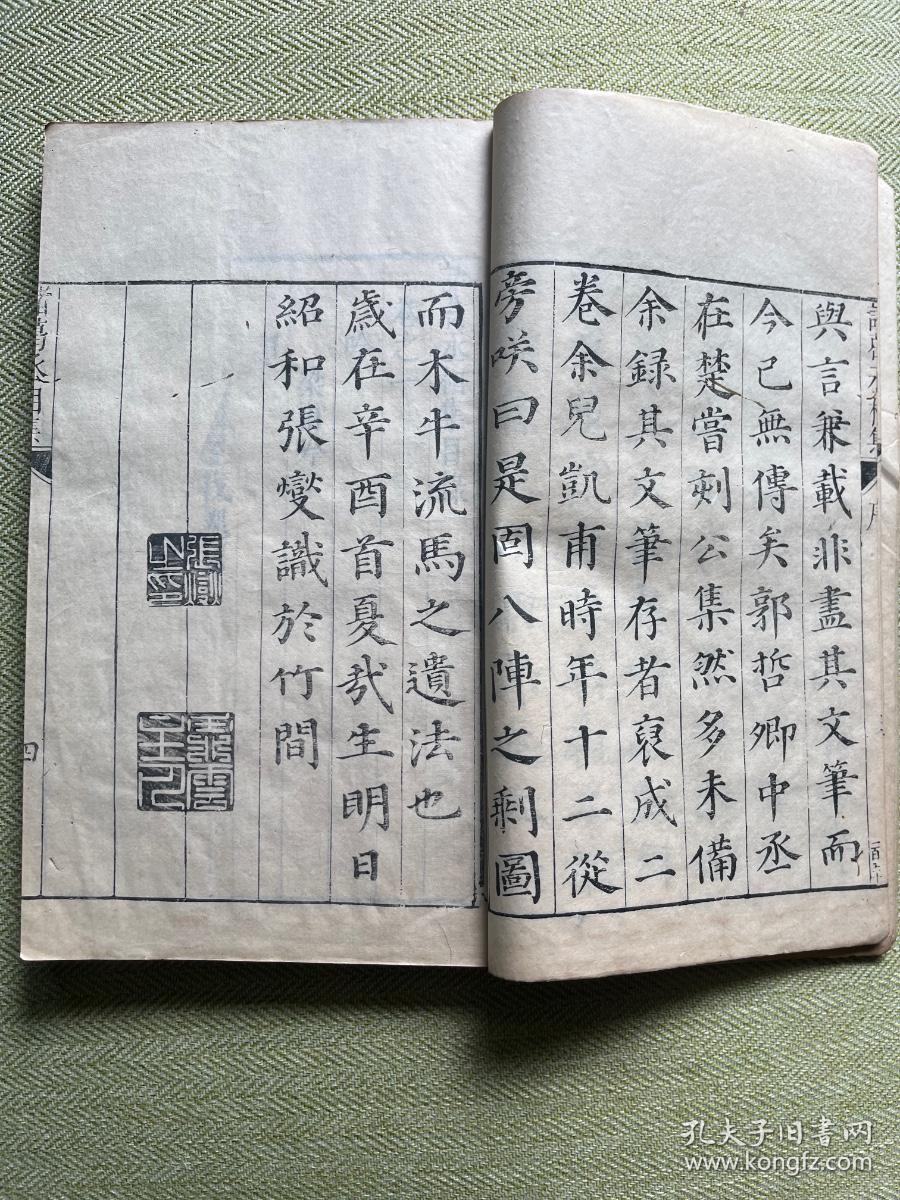 與言兼載非盡其文筆而
今已無傳矣郭哲卿中丞
在楚嘗刻公集然多未備
余録其文筆存者裒成二
卷余兒凱甫時年十二從
旁咲曰是固八陣之剩圖
而木牛流馬之遺法也
歲在辛酉首夏哉生明日
紹和張燮識於竹間
四
孔夫子旧书网
www.kongfz.com